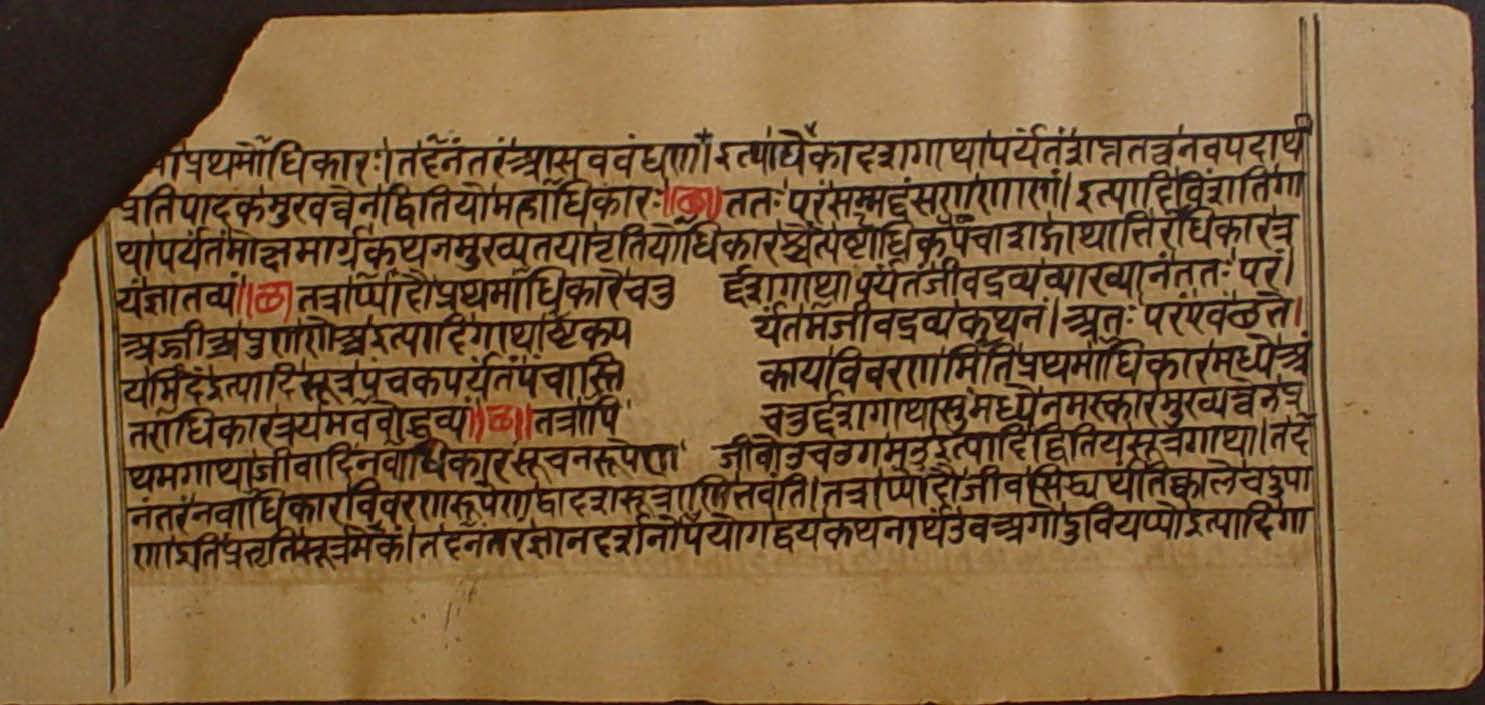 मा प्रथमोधिकारः। तदनंतरं आसवबंधण इत्याद्येकादशगाथापर्यंतं शप्ततत्वनवपदार्थ
प्रतिपादकमुखत्वेन द्वितियो महाधिकारः॥छ॥ ततः परं सम्मद्दंसणणाणं। इत्यादि विंशतिगा
थापर्यंत मोक्षमार्गकथनमुख्यतया तृतियोधिकारश्चेत्यष्टाधिकपंचाशद्गाथाभिरधिकारत्र
यं ज्ञातव्यं॥छ॥ तत्राप्यादौ प्रथमाधिकारे चतु र्द्दशगाथापर्यंतं जीवद्रव्यव्याख्यानं ततः परं।
अज्जीओ पुण णेओ इत्यादिगाथाष्टकप र्यंतमजीवद्रव्यकथनं। अतः परं एवं छत्ते।
यमिदं इत्यादिसूत्रपंचकपर्यंतं पंचास्ति कायविवरणमिति प्रथमाधिकारमध्ये अं
तराधिकारत्रयमवबोद्धव्यं॥छ॥ तत्रापि चतुर्द्दशगाथासु मध्ये नमस्कारमुख्यत्वेन प्र
थमगाथा जीवादिनवाधिकारसूचनरूपेण जीवो उवउगमउ इत्यादि द्वितियसूत्रगाथा। तद
नंतरं नवाधिकारविवरणरूपेण द्वादशसूत्राणि भवंति। तत्राप्यादौ जीवसिद्ध्यर्थं तिक्काले चदुपा
णा इति प्रभृतिसूत्रमेकं। तदनंतरं ज्ञानदर्शनोपयोगद्वयकथनार्थं उवओगो दुवियप्पो इत्यादिगा